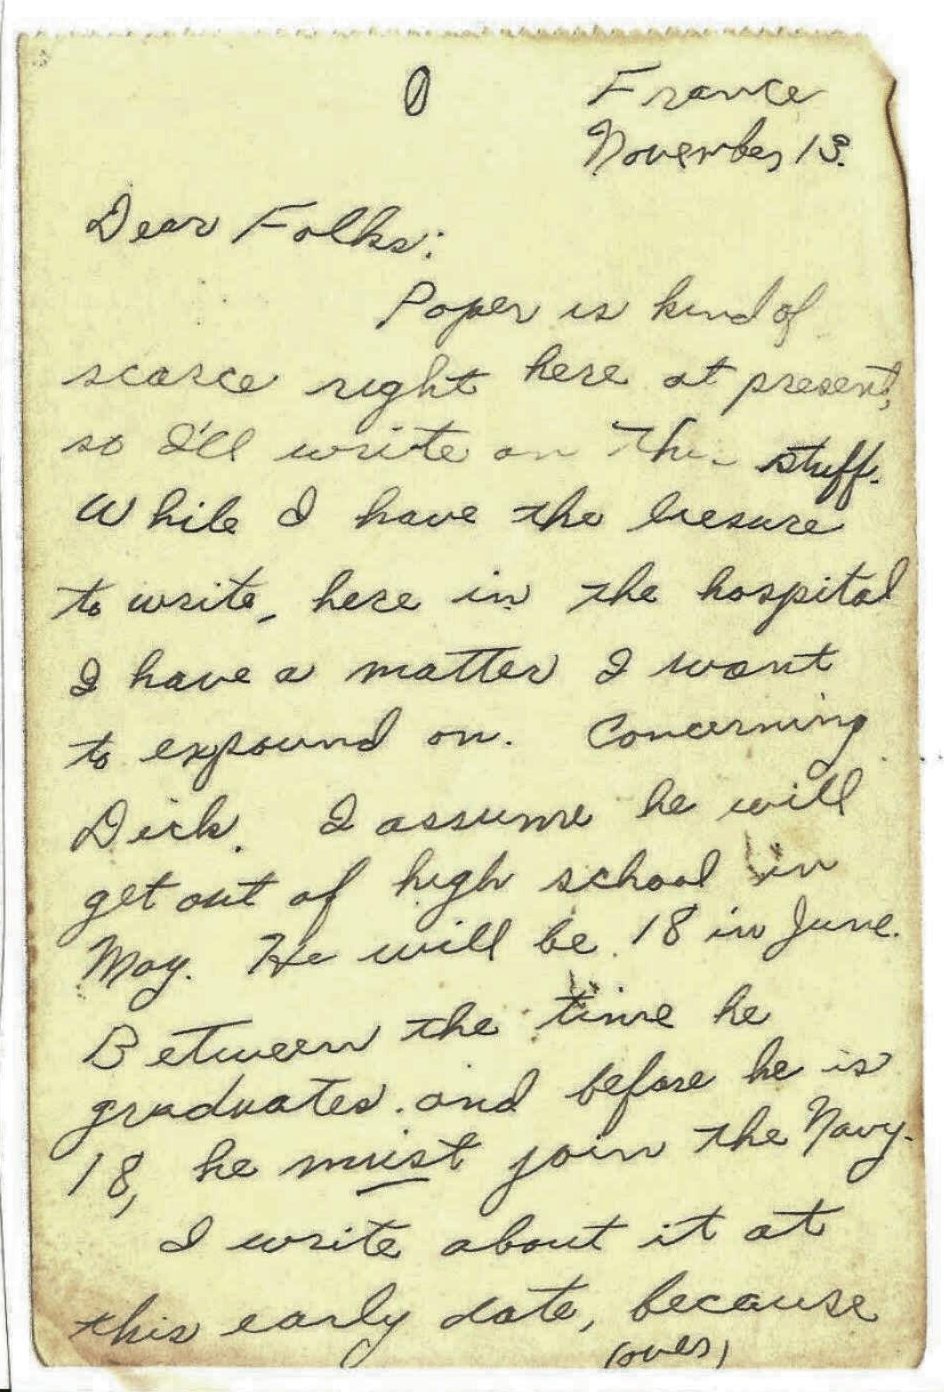 France
November 13.
Dear Folks:
Paper is kind of
scarce right here at present,
so I'll write on this stuff.
While I have the liesure
to write, here in the hospital
I have a matter I want
to expound on. Concerning
Dick. I assume he will
get out of high school in
May. He will be 18 in June.
Between the time he
graduates and before he is
18, he must join the Navy.
I write about it at
this early date, because
(over)